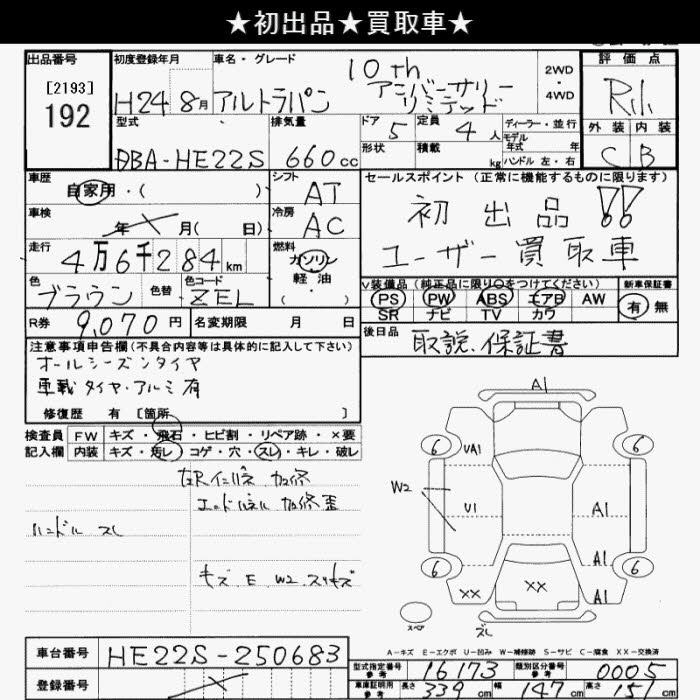 ★初出品★買取車★
出品番号 初度登録年月 車名・グレード 評価点
[2193]
192
H24 8月 アルトラパン 10th アニバーサリーリミテッド 2WD・4WD R.I.
外装 内装
C B
型式 排気量 ドア 定員 ディーラー・並行
DBA-HE22S 660cc 5 4人 モデル年式 年
形状 積載 kg ハンドル 左・右
車歴 シフト セールスポイント(正常に機能するものに限ります)
自家用・( ) AT
車検 年 月( 日) 冷房 AC
初出品!!
ユーザー買取車
走行 4万6千284km 燃料 ガソリン 軽油・( )
色 ブラウン 色替 色コード ZEL
V装備品(純正品に限り○をつけてください) 新車保証書
PS PW ABS エアB AW 有 無
SR ナビ TV カワ
R券 9,070円 名変期限 月 日
後日品 取説、保証書
注意事項申告欄(不具合内容等は具体的に記入して下さい)
オールシーズンタイヤ
車載タイヤ・アルミ有
修復歴 有 [箇所 ]
検査員 FW キズ・飛石・ヒビ割・リペア跡・×要
記入欄 内装 キズ・汚レ・コゲ・穴・スレ・キレ・破レ
左Rインパネ 加修
エンドパネル 加修歪
ハンドル スレ
キズ E W2 スリキズ
A1
6 VA1 6
W2 V1 A1
A1
6 6
XX XX A1
スペア
スレ
A-キズ E-エクボ U-凹み W-補修跡 S-サビ C-腐食 XX-交換済
車台番号 HE22S-250683
登録番号
型式指定番号 参考 16173 類別区分番号 参考 0005
車庫証明用 参考 長さ 339cm 幅 147cm 高さ 151cm